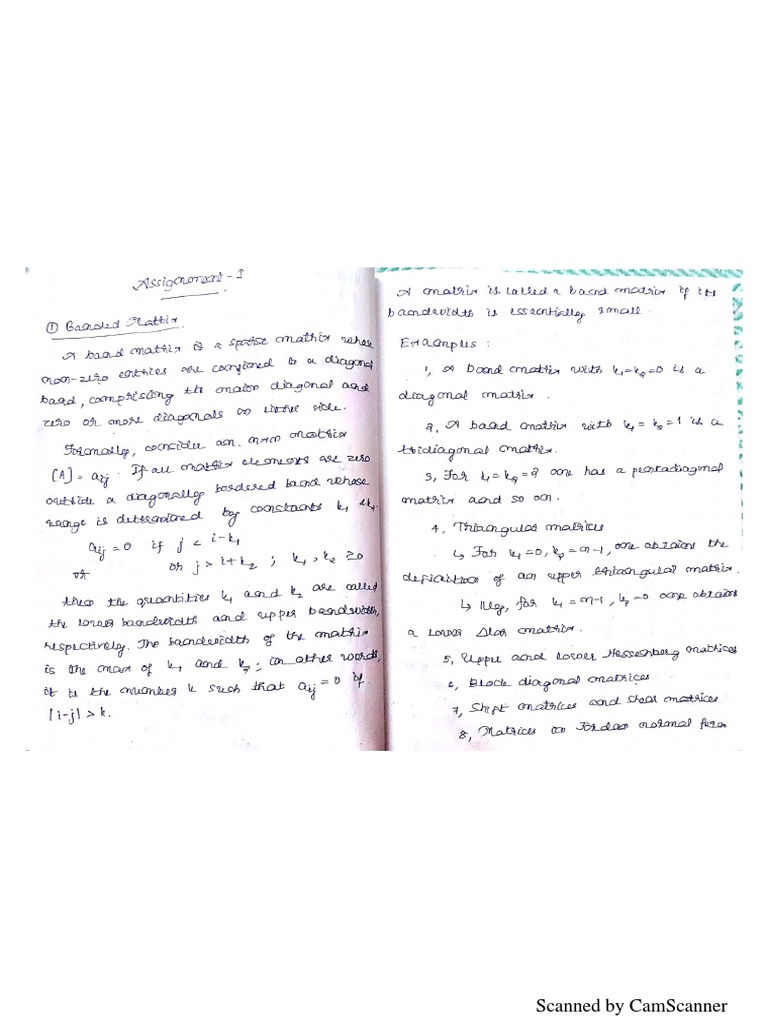 Assignment-I
① Banded Matrix.
A band matrix is a sparse matrix whose
non-zero entries are confined to a diagonal
band, comprising the main diagonal and
zero or more diagonals on either side.
Formally, consider an n×n matrix
[A] = aij. If all matrix elements are zero
outside a diagonally bordered band whose
range is determined by constants k1 & k2
aij = 0 if j < i-k1
or or j > i+k2 ; k1, k2 ≥0
then the quantities k1 and k2 are called
the lower bandwidth and upper bandwidth,
respectively. The bandwidth of the matrix
is the max of k1 and k2; in other words,
it is the number k such that aij = 0 if
|i-j| > k.
A matrix is called a band matrix if its
bandwidth is essentially small.
Examples :
1, A band matrix with k1=k2=0 is a
diagonal matrix.
2, A band matrix with k1 = k2 = 1 is a
tridiagonal matrix.
3, For k1 = k2 = 2 one has a pentadiagonal
matrix and so on.
4, Triangular matrices
↳ For k1=0, k2=n-1, one obtains the
definition of an upper triangular matrix.
↳ Illy, for k1 = n-1, k2=0 one obtains
a lower Δlar matrix.
5, Upper and Lower Hessenberg matrices
6, Block diagonal matrices
7, Shift matrices and shear matrices
8, Matrices in Jordan normal form
Scanned by CamScanner